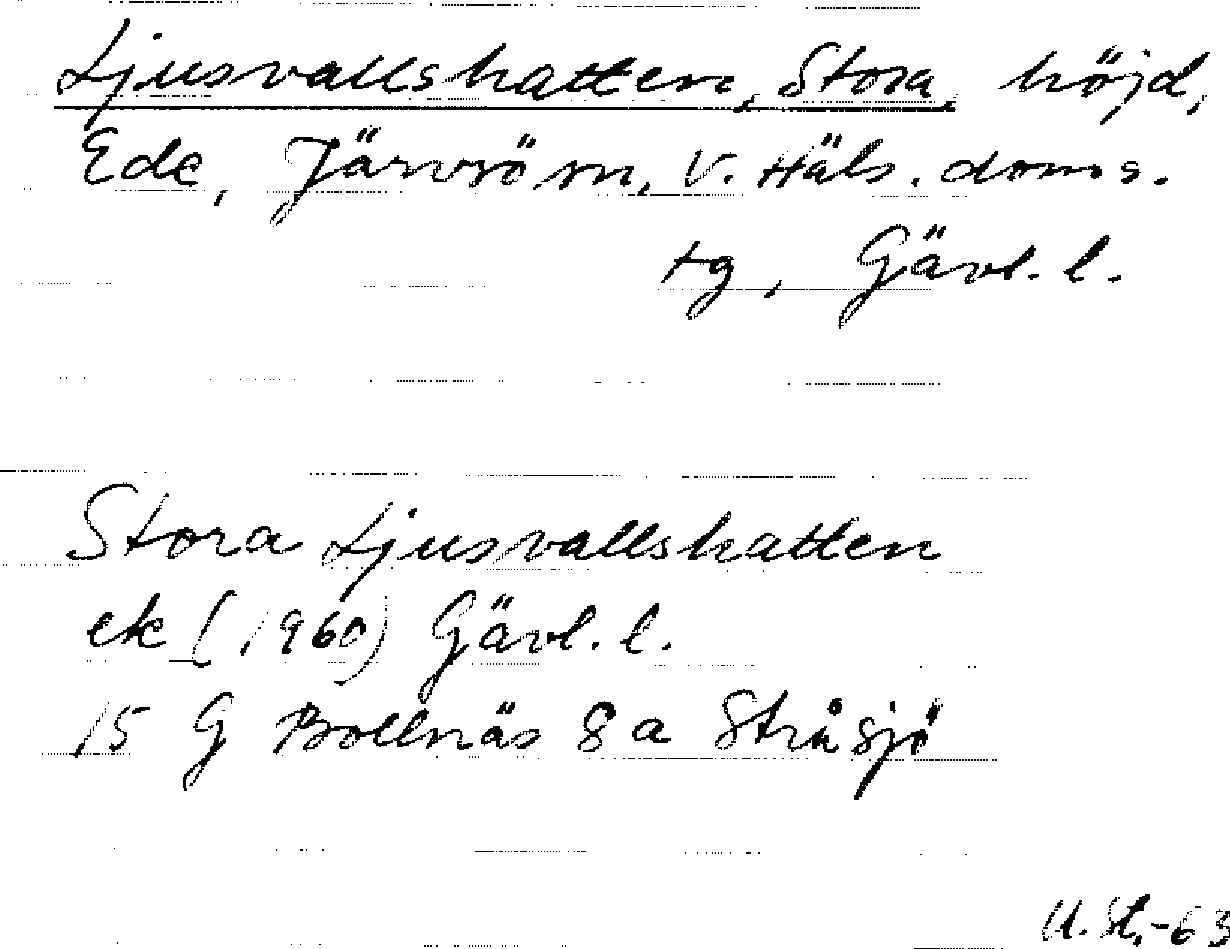 Ljusvallshatten, Stora, höjd,
Ede, Järvsö sn, V. Häls. doms.
tg, Gävl. l.
Stora Ljusvallshatten
ek (1960) Gävl. l.
15 G Bollnäs 8a Stråsjö
U. St. -63